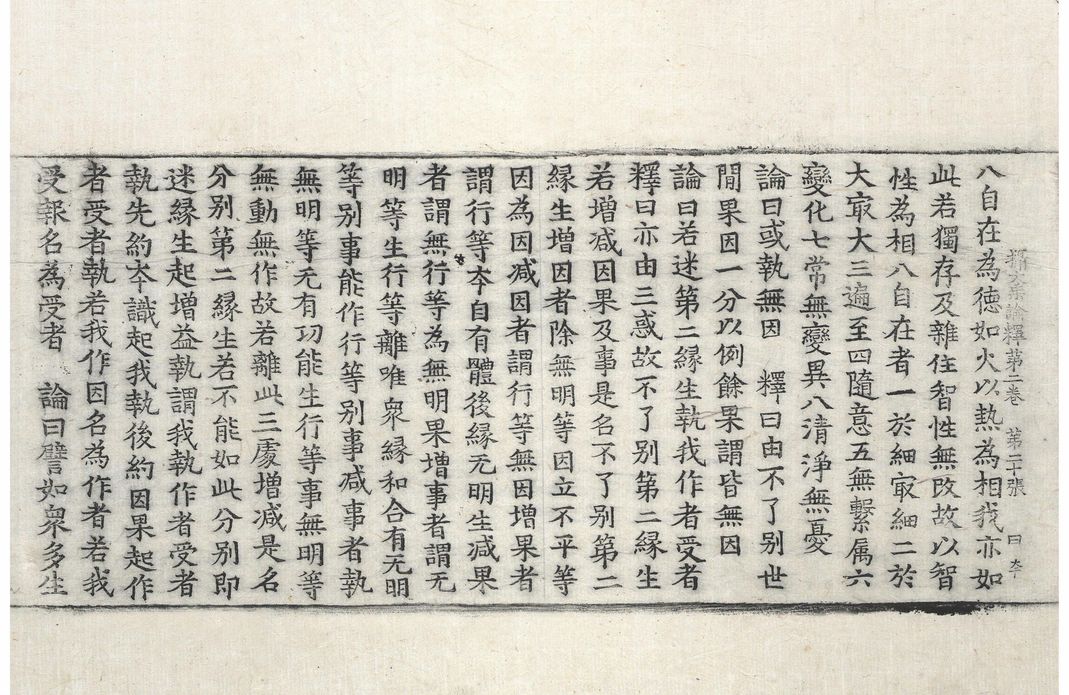 攝大乘論釋第二卷　第二十張　曰　李
八自在為德如火以熱為相我亦如
此若獨存及雜住智性無改故以智
性為相八自在者一於細㝡細二於
大㝡大三遍至四隨意五無繫属六
變化七常無變異八清淨無憂
論曰或執無因　釋曰由不了別世
間果因一分以例餘果謂皆無因
論曰若迷第二緣生執我作者受者
釋曰亦由三惑故不了别第二緣生
若增减因果及事是名不了别第二
緣生增因者除無明等因立不平等
因為因减因者謂行等無因增果者
謂行等夲自有體後緣无明生减果
者謂無行等為無明果增事者謂无
明等生行等離唯衆緣和合有无明
等別事能作行等别事减事者執
無明等无有功能生行等事無明等
無動無作故若離此三處增减是名
分别第二緣生若不能如此分别即
迷緣生起增益執謂我執作者受者
執先約夲識起我執後約因果起作
者受者執若我作因名為作者若我
受報名為受者　論曰譬如衆多生